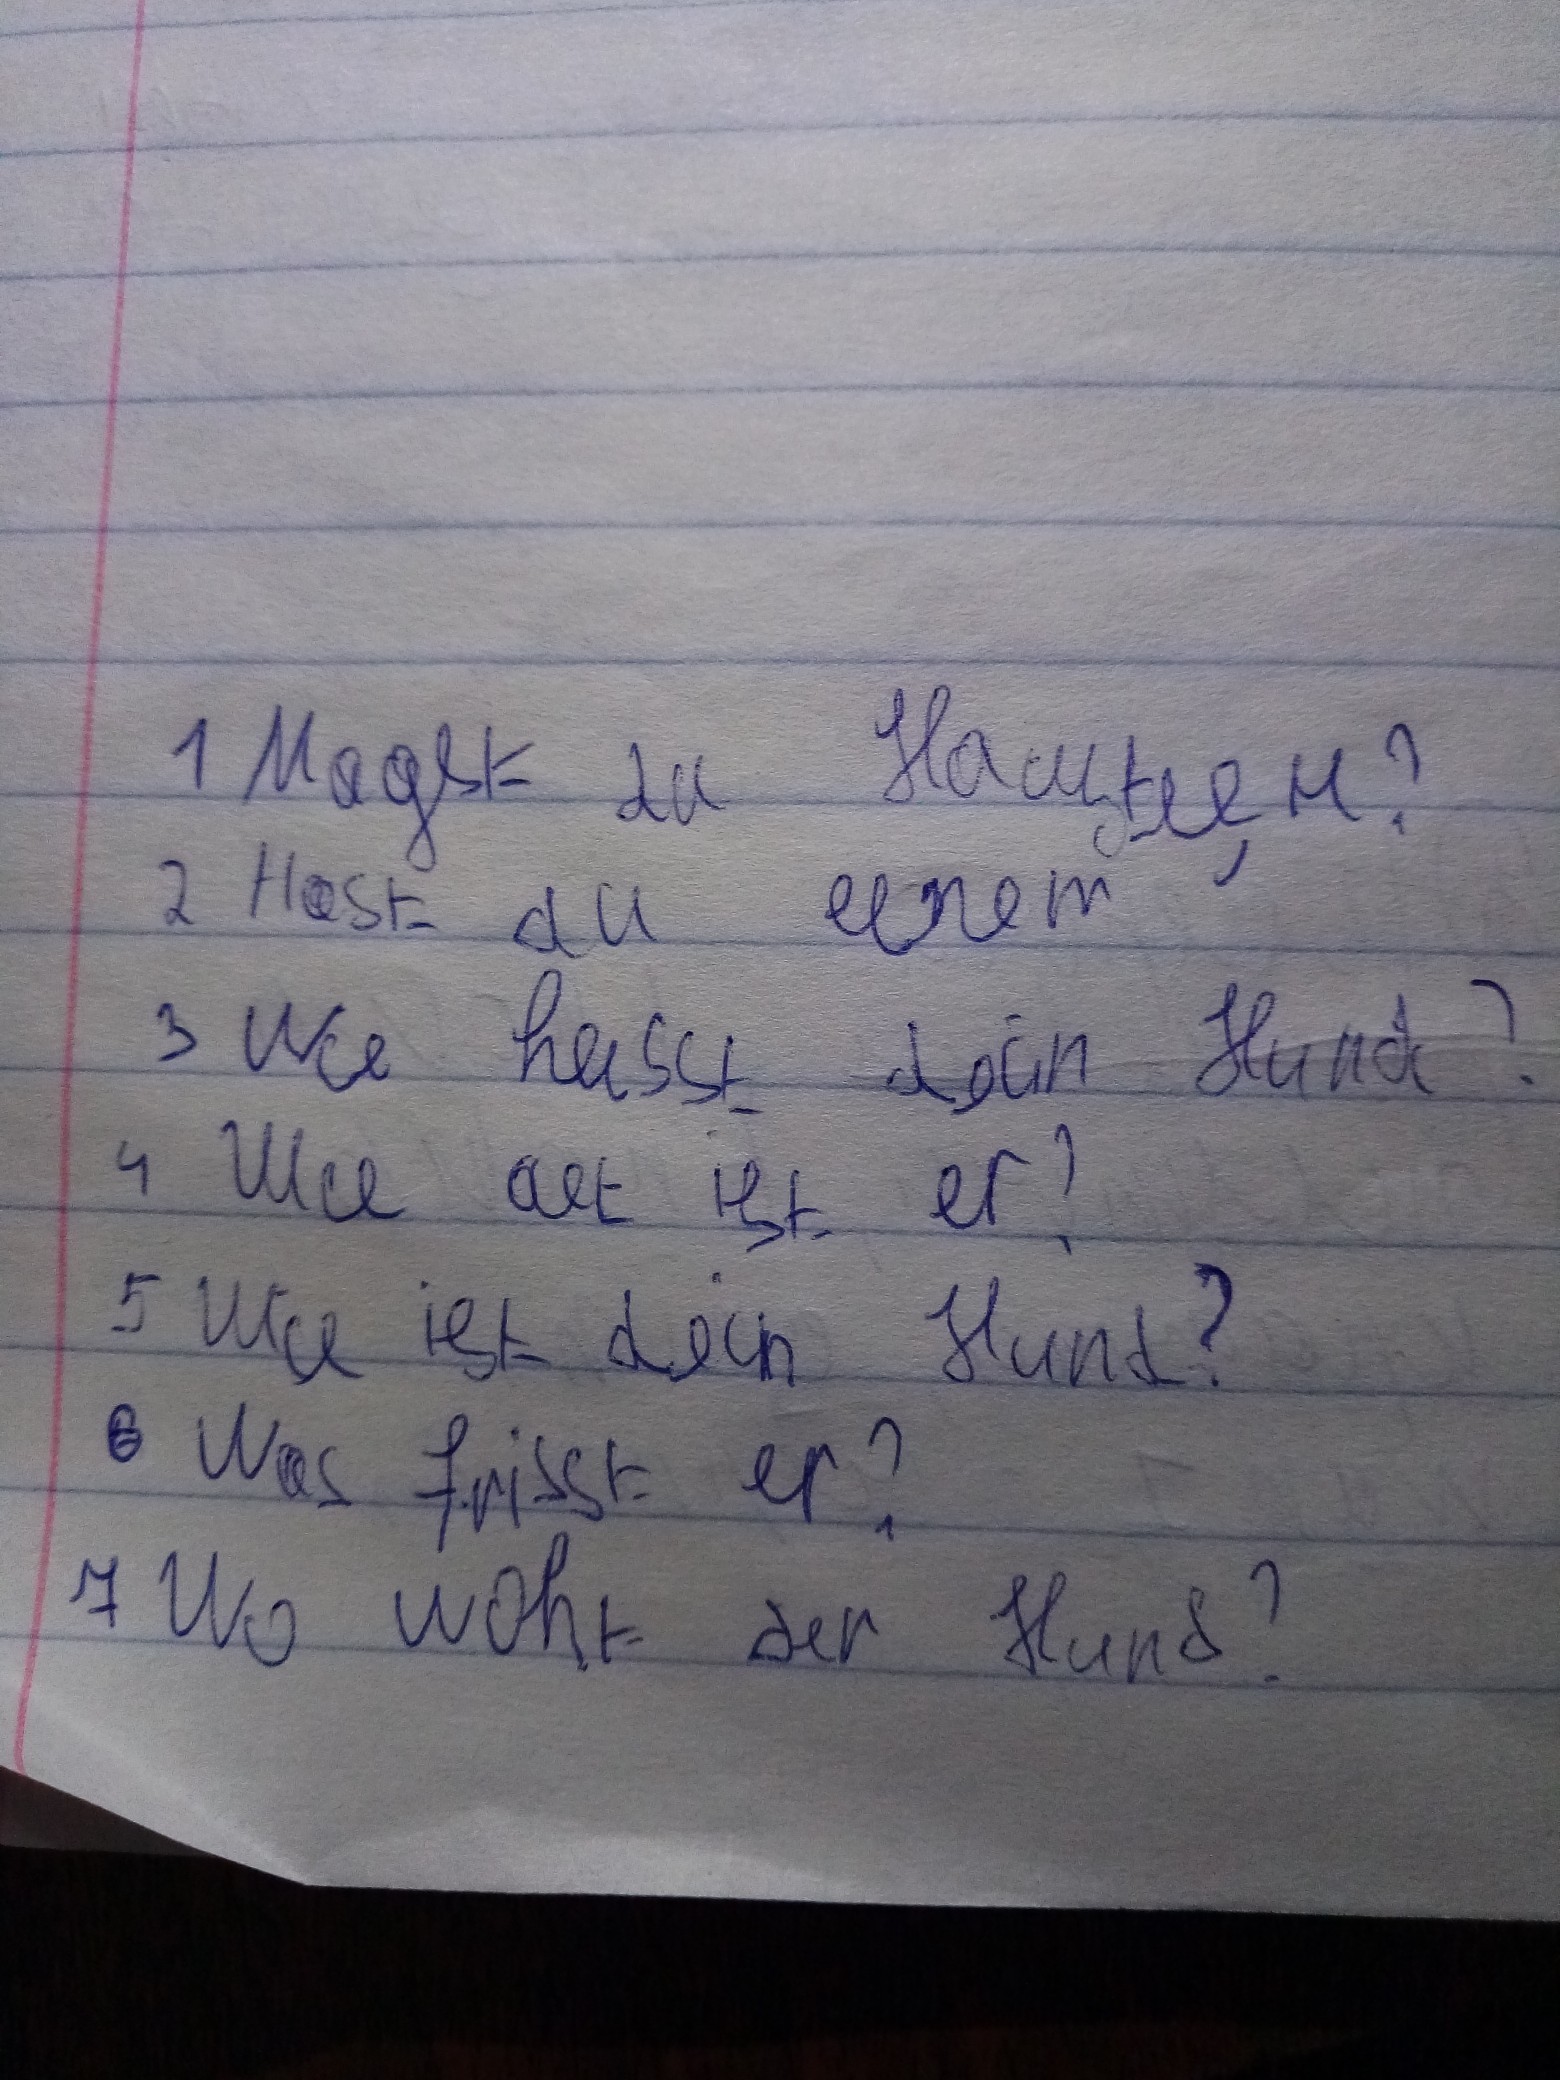 1 Magst du Haustier?
2 Hast du einem
3 Wie heisst dein Hund?
4 Wie alt ist er?
5 Wie ist dein Hund?
6 Was frisst er?
7 Wo woht der Hund?